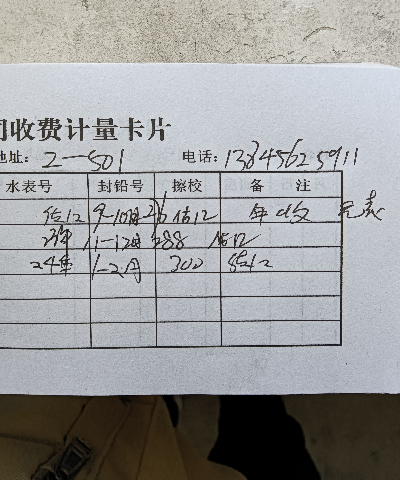 收费计量卡片
址: 2-501 电话: 13845625911
水表号 封铅号 擦校 备 注
估12 9-10月 276 估12 年收 无表
23年 11-12月 288 估12
24年 1-2月 300 估12